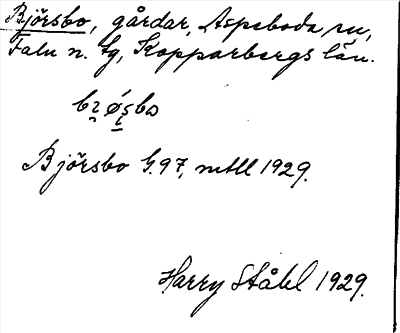 Björsbo, gårdar, Aspeboda sn,
Falu n. tg, Kopparbergs län.
Björsbo G. 97, mtll 1929.
Harry Ståhl 1929.